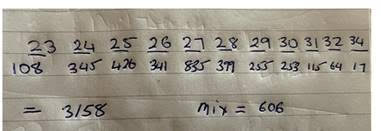 23 24 25 26 27 28 29 30 31 32 34
108 345 426 341 835 399 255 253 115 64 17
= 3158 mix = 606